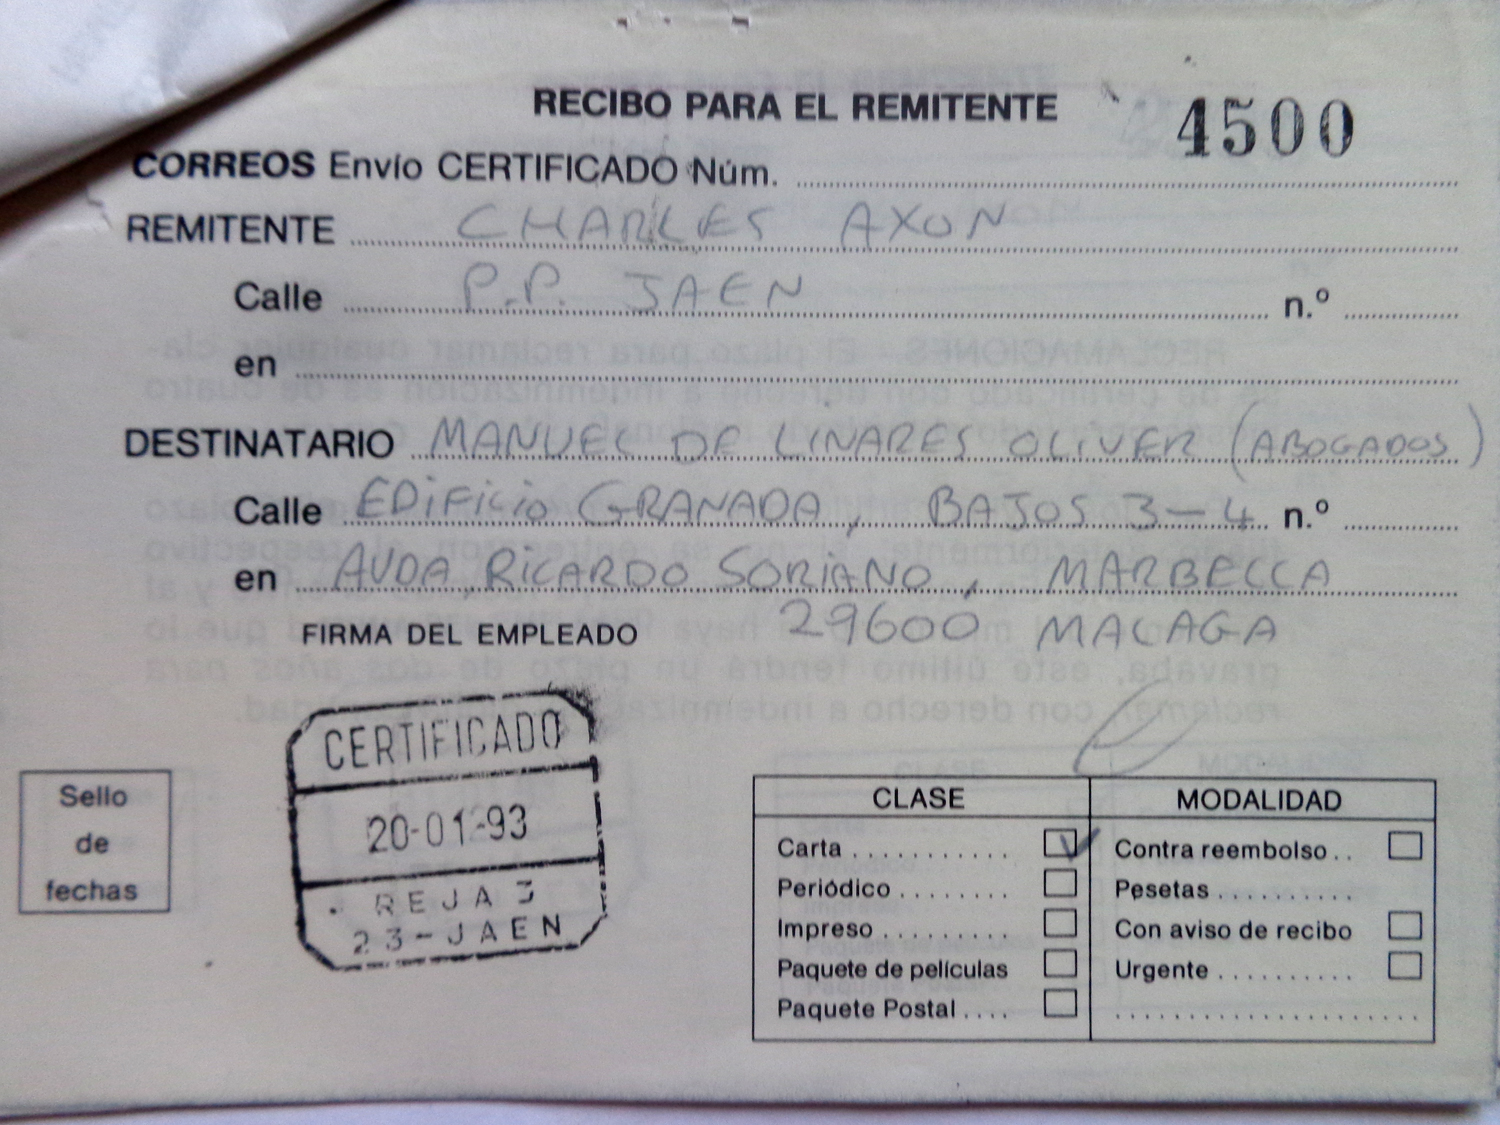 RECIBO PARA EL REMITENTE
4500
CORREOS Envío CERTIFICADO Núm.
REMITENTE CHARLES AXON
Calle P.P. JAEN n.º
en
DESTINATARIO MANUEL DE LINARES OLIVER (ABOGADOS)
Calle EDIFICIO GRANADA, BAJOS 3-4 n.º
en AVDA, RICARDO SORIANO, MARBELLA
FIRMA DEL EMPLEADO 29600 MALAGA
CERTIFICADO
20-01-93
REJA 3
23-JAEN
Sello
de
fechas
CLASE MODALIDAD
Carta Contra reembolso
Periódico Pesetas
Impreso Con aviso de recibo
Paquete de películas Urgente
Paquete Postal